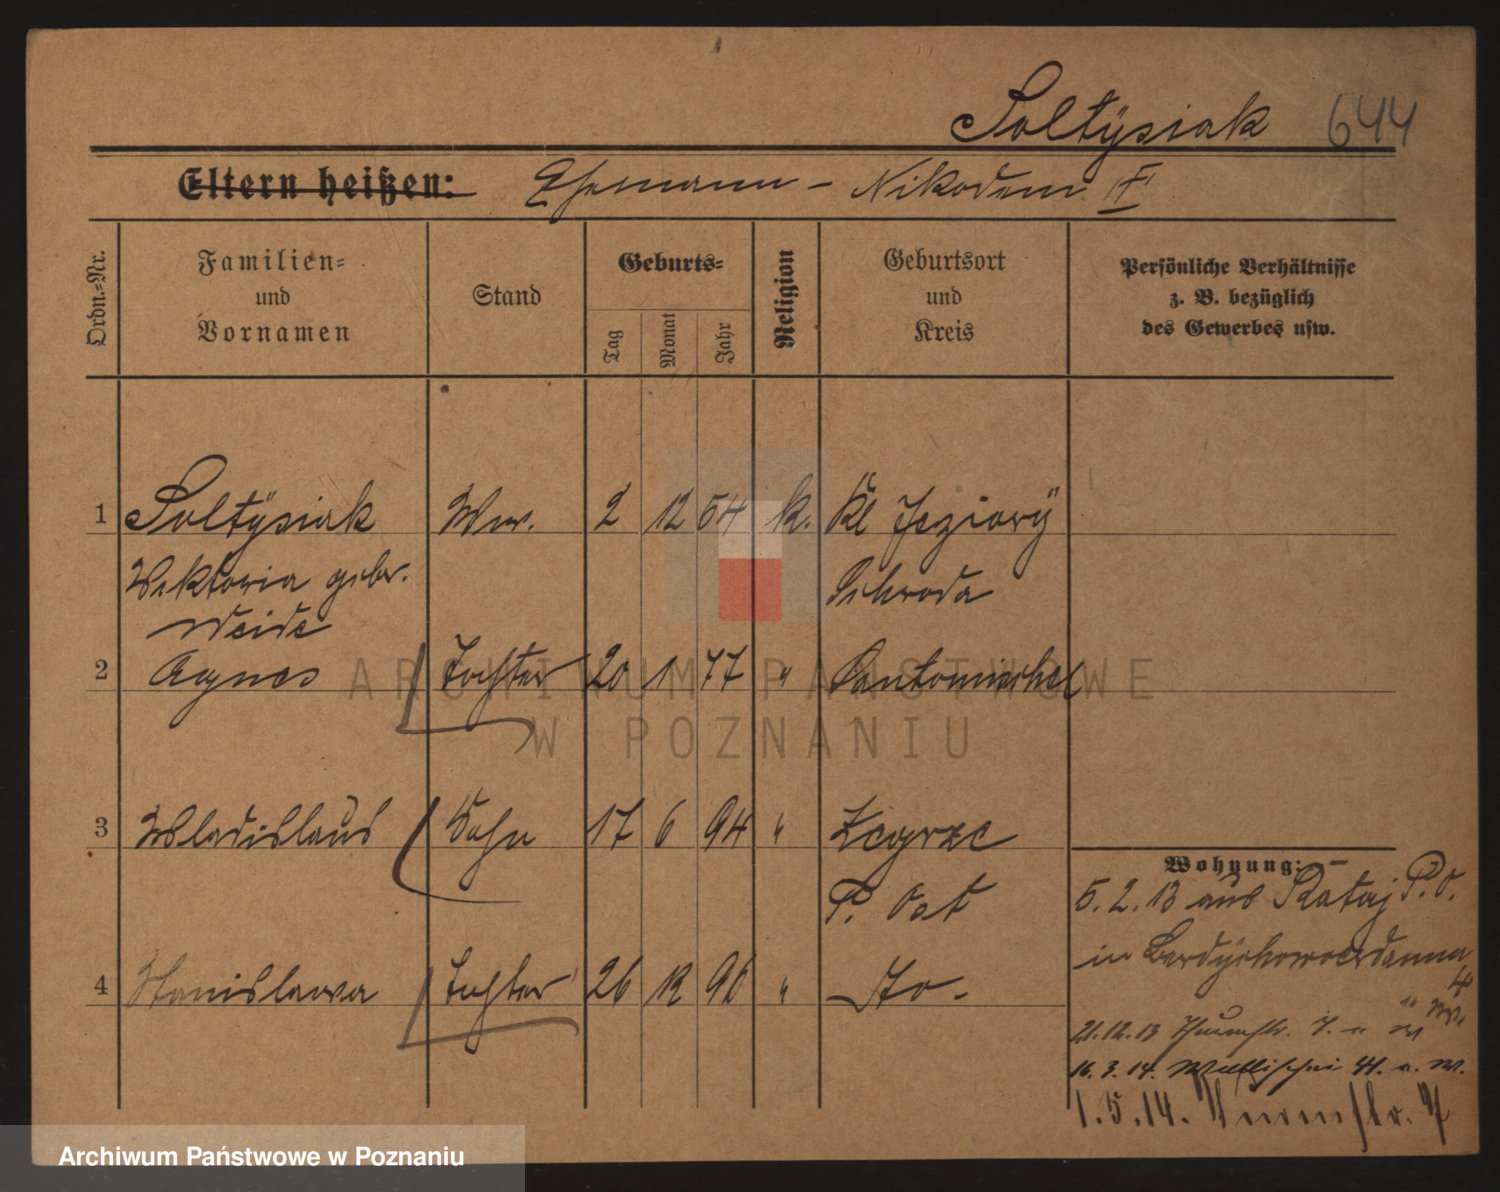 Soltÿsiak 644
Eltern heißen: Ehemann - Nikodem
Ordn.=Nr.
Familien=
und
Vornamen
Stand
Geburts=
Tag
Monat
Jahr
Religion
Geburtsort
und
Kreis
Persönliche Verhältnisse
z. B. bezüglich
des Gewerbes usw.
1 Soltÿsiak Ww. 2 12 54 k. Kl Jeziorÿ
Viktoria gebr. Schroda
Weide
2 Agnes Tochter 20 1 77 " Santomischel
3 Wladislaus Sohn 17 6 94 " Zegrze
P. Ost
4 Stanislawa Tochter 26 12 96 " - Do -
Wohnung: -
5. 2. 13 aus Rataj P. O.
in Berdÿchowoerdamm
4
21.12.13
16. 3. 14. Wallischei 41.
1. 5. 14. Thurmstr. 7
ARCHIWUM PAŃSTWOWE
W POZNANIU
Archiwum Państwowe w Poznaniu